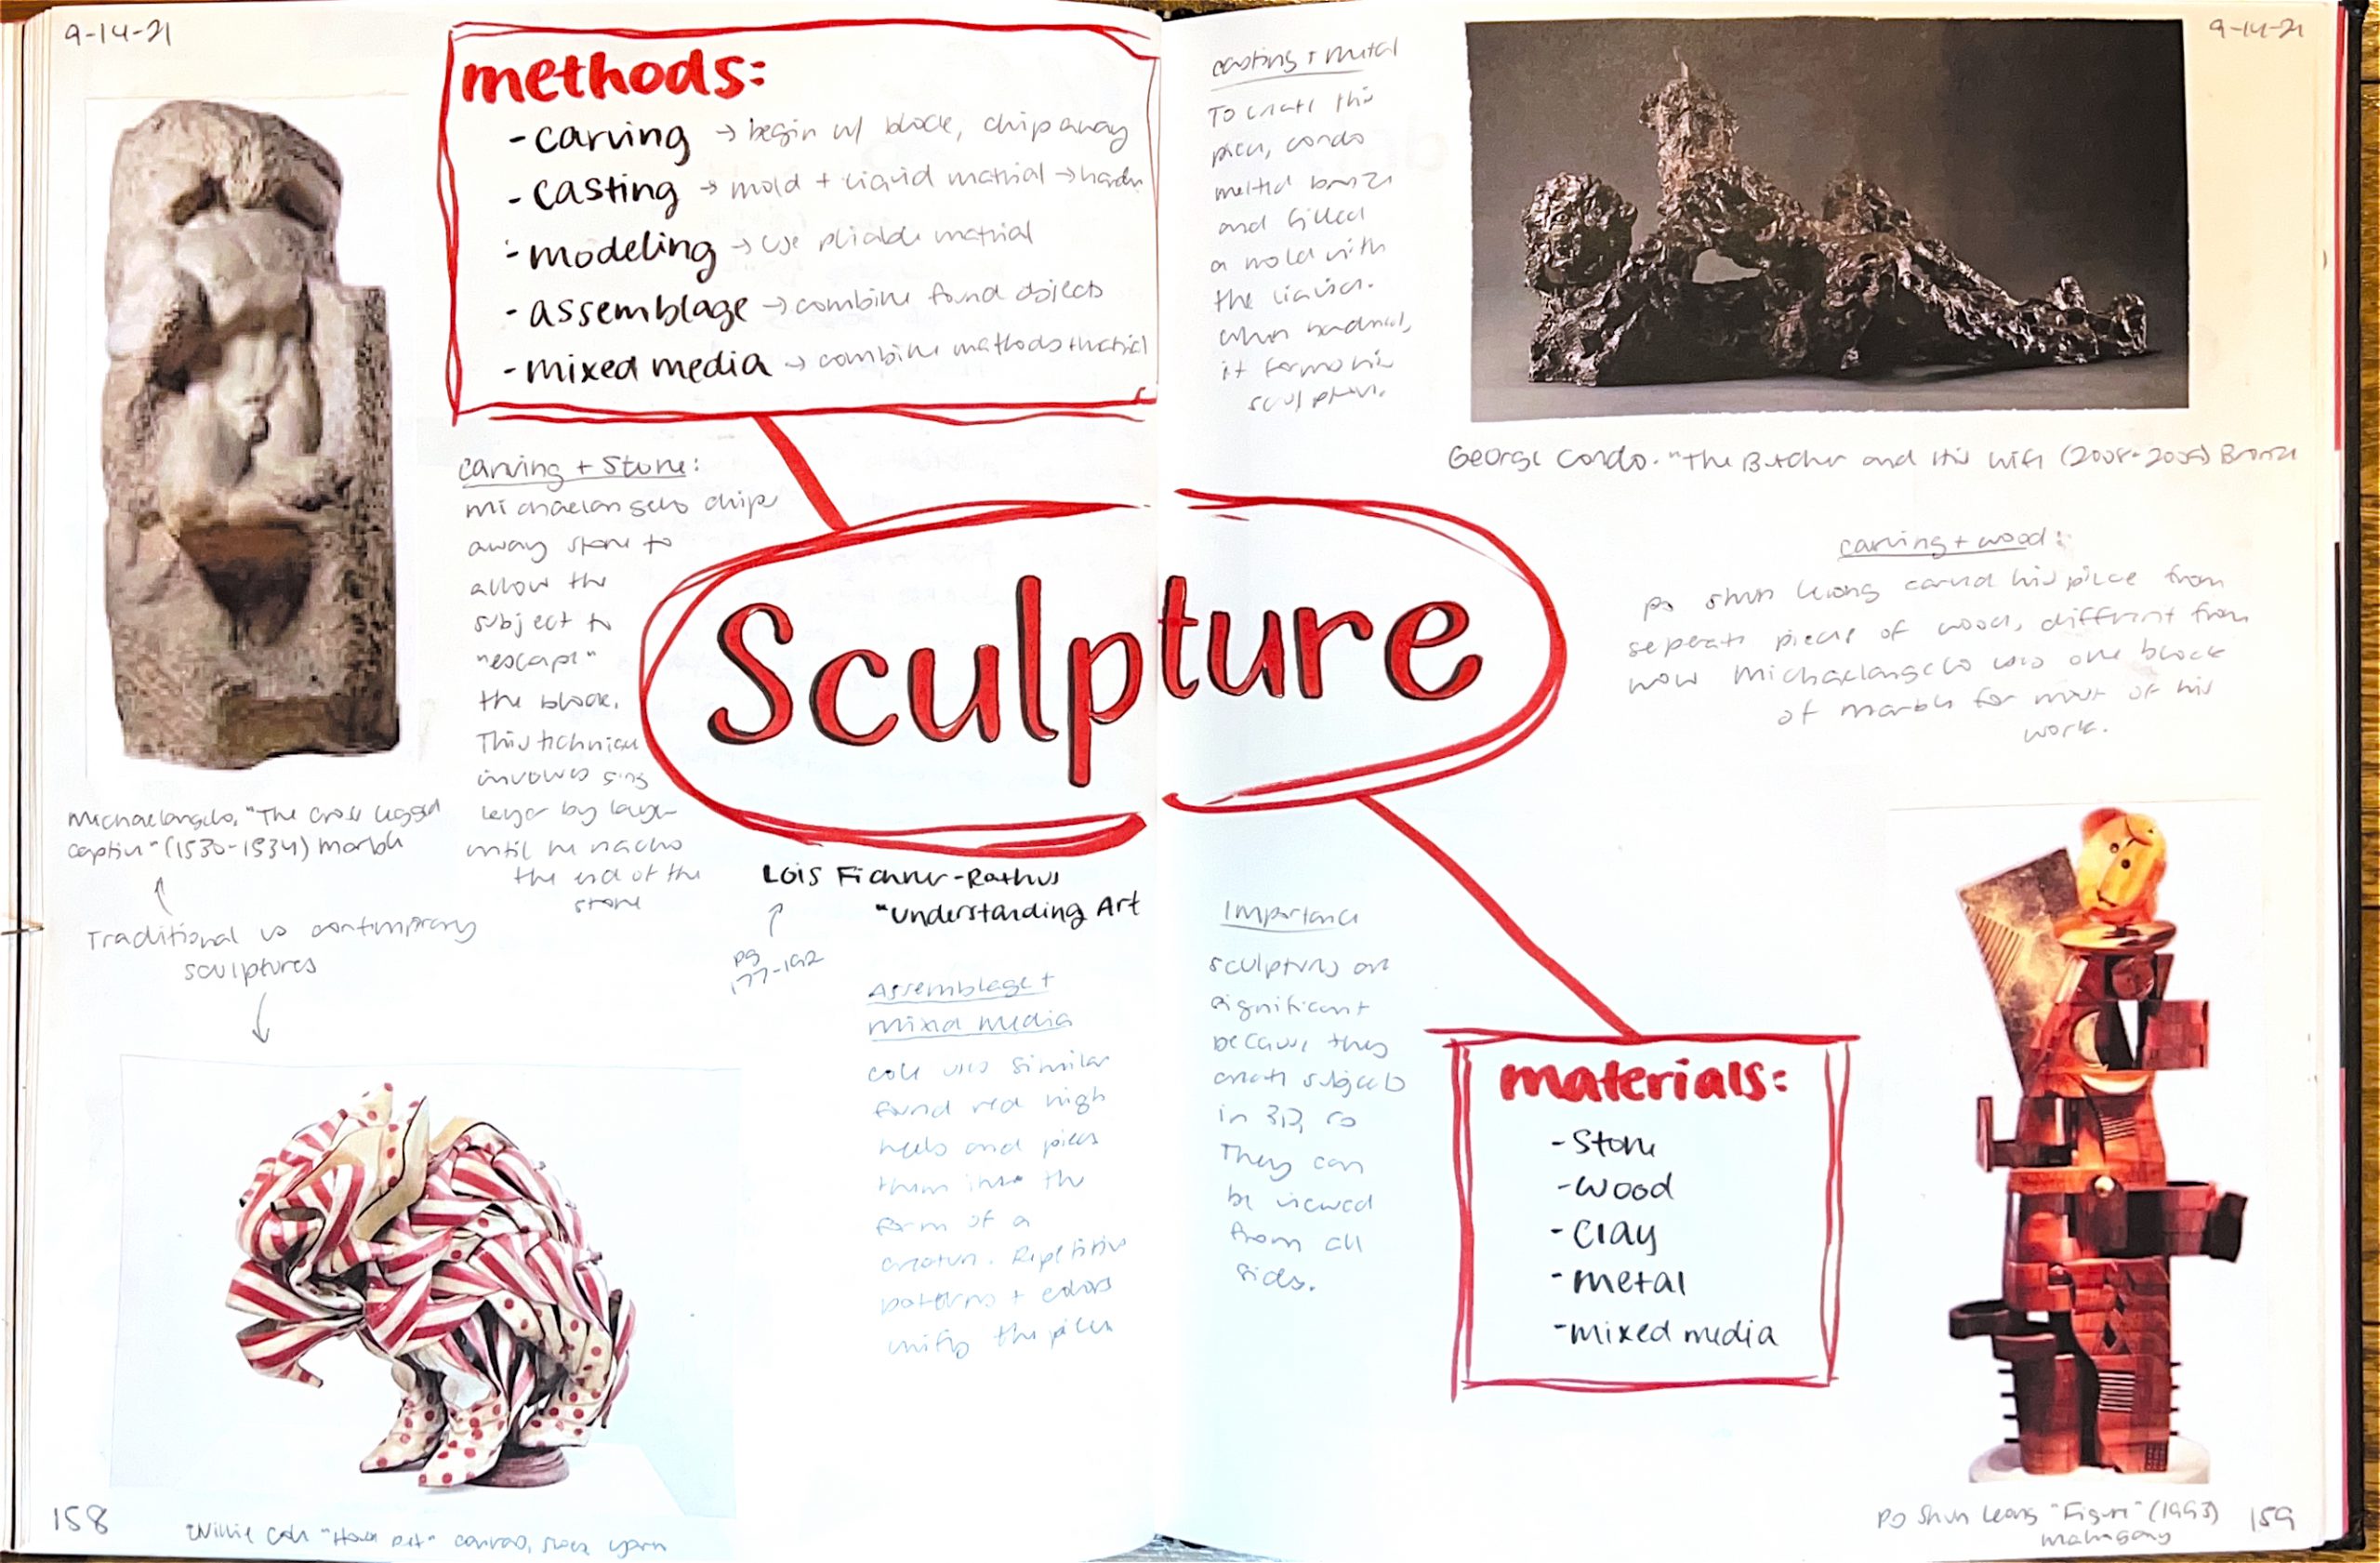 9-14-21
methods:
- carving → begin w/ block, chip away
- casting → mold + liquid material → harden
- modeling → use pliable material
- assemblage → combine found objects
- mixed media → combine methods + material
carving + stone:
michaelangelo chips
away stone to
allow the
subject to
"escape"
the block.
This technique
involves going
layer by layer
until he reaches
the end of the
stone
Michaelangelo, "The Cross Legged
Captive" (1530-1534) marble
Traditional vs contemporary
sculptures
Sculpture
Lois Fichner-Rathus
"Understanding Art
pg
177-192
Assemblage +
mixed media
cole uses similar
found red high
heels and pieces
them into the
form of a
creature. Repetitive
patterns + colors
unify the piece
158
Willie Cole "
canvas, shoes, yarn
9-14-21
casting + metal
To create this
piece, condo
melted bronze
and filled
a mold with
the liquid.
when hardened,
it forms his
sculpture.
George Condo. "The Butcher and His Wife (2008-2009) Bronze
carving + wood:
Po Shun Leong carved his piece from
seperate pieces of wood, different from
how Michaelangelo uses one block
of marble for most of his
work.
Importance
sculptures are
significant
because they
create subjects
in 3D, so
They can
be viewed
from all
sides.
materials:
- stone
- wood
- clay
- metal
- mixed media
Po Shun Leong "Figure" (1993)
mahogany
159